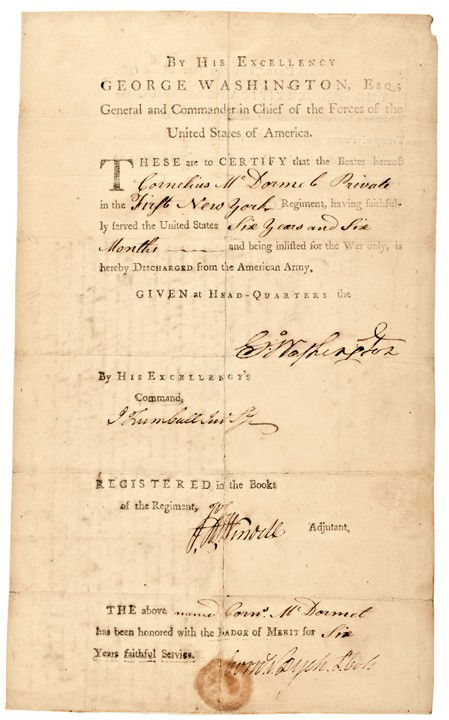 By His Excellency
GEORGE WASHINGTON, Esq;
General and Commander in Chief of the Forces of the
United States of America.
THESE are to CERTIFY that the Bearer hereof
Cornelius McDormel Private
in the First New York Regiment, having faithful-
ly served the United States Six Years and Six
Months and being inlisted for the War only, is
hereby Discharged from the American Army.
GIVEN at Head-Quarters the
Go Washington
By His Excellency's
Command,
J Trumbull Junr Sy
REGISTERED in the Books
of the Regiment,
Adjutant,
THE above named Corns. McDormel
has been honored with the Badge of Merit for Six
Years faithful Service.